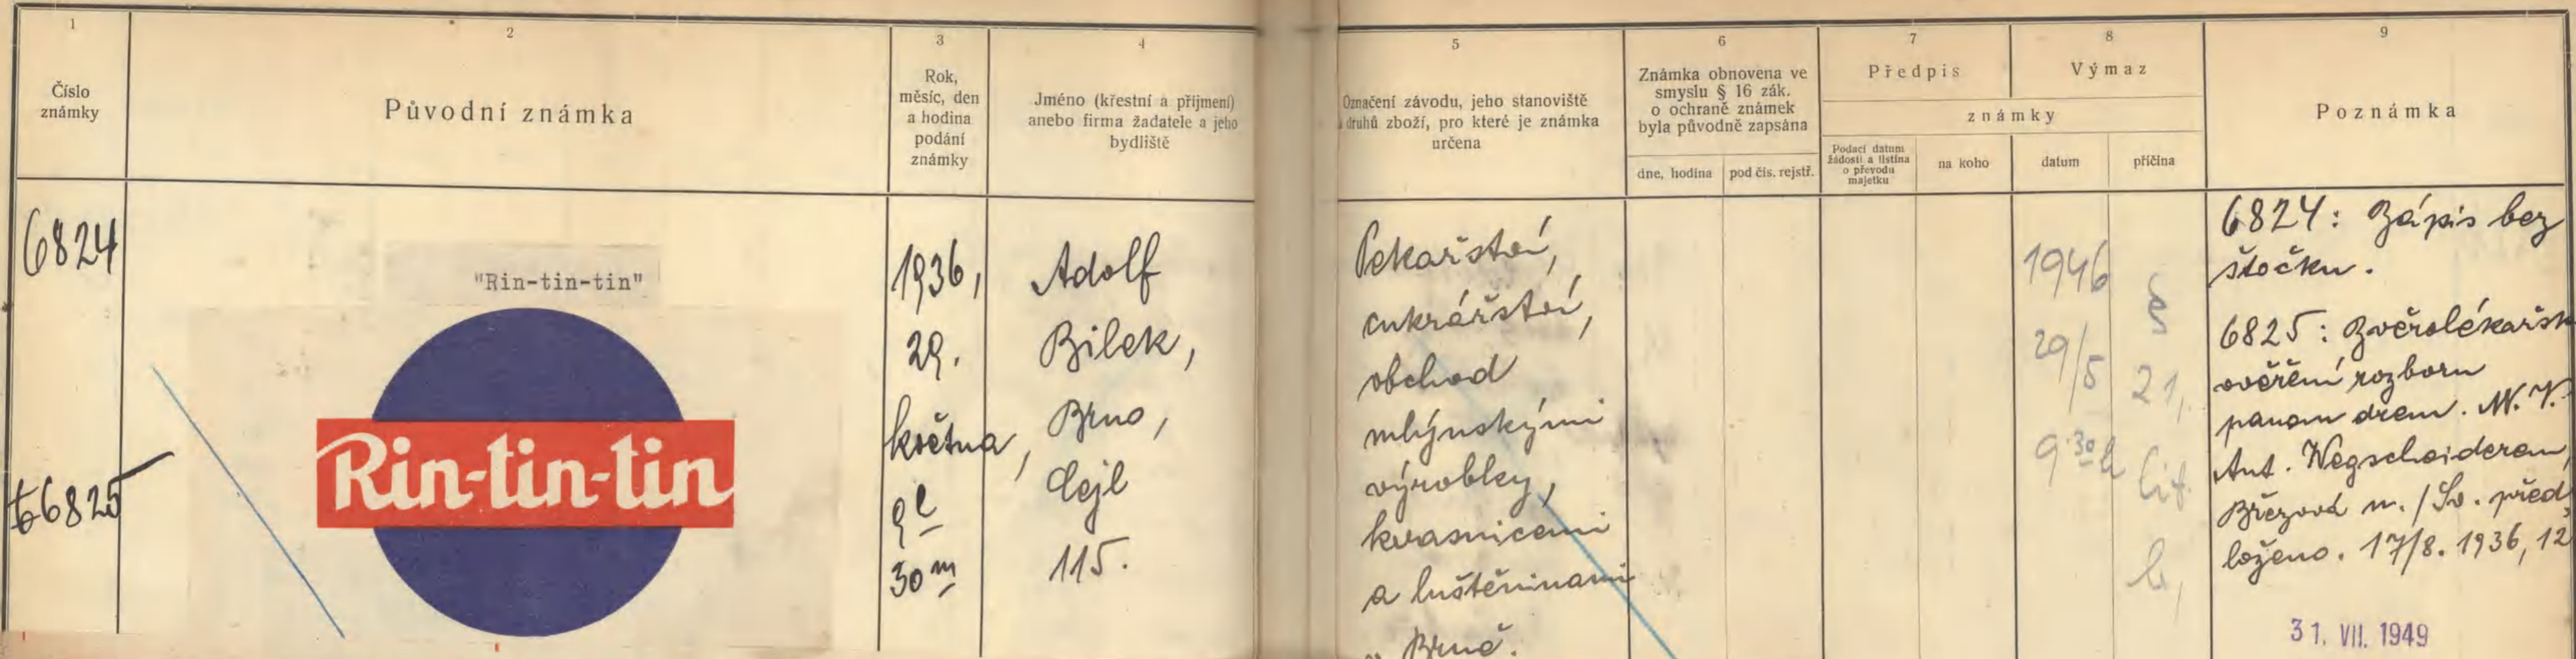 1
Číslo
známky
2
Původní známka
3
Rok,
měsíc, den
a hodina
podání
známky
4
Jméno (křestní a příjmení)
anebo firma žadatele a jeho
bydliště
5
Označení závodu, jeho stanoviště
a druhů zboží, pro které je známka
určena
6
Známka obnovena ve
smyslu § 16 zák.
o ochraně známek
byla původně zapsána
dne, hodina
pod čís. rejstř.
7
Předpis
8
Výmaz
známky
Podací datum
žádosti a listina
o převodu
majetku
na koho
datum
příčina
9
Poznámka
6824
6825
"Rin-tin-tin"
Rin-tin-tin
1936,
29.
května,
9h
30m
Adolf
Bílek,
Brno,
Cejl
115.
Pekařství,
cukrářství,
obchod
mlýnskými
výrobky,
kvasnicemi
a luštěninami
v Brně.
1946
29/5
9 30 h
§
21,
lit.
b,
6824: Zápis bez
štočku.
6825: Zvěrolékařsk
ověření rozboru
panem drem. M. V.
Ant. Wegscheiderem,
Březová n./Sv. před
loženo. 17/8. 1936, 12
31. VII. 1949